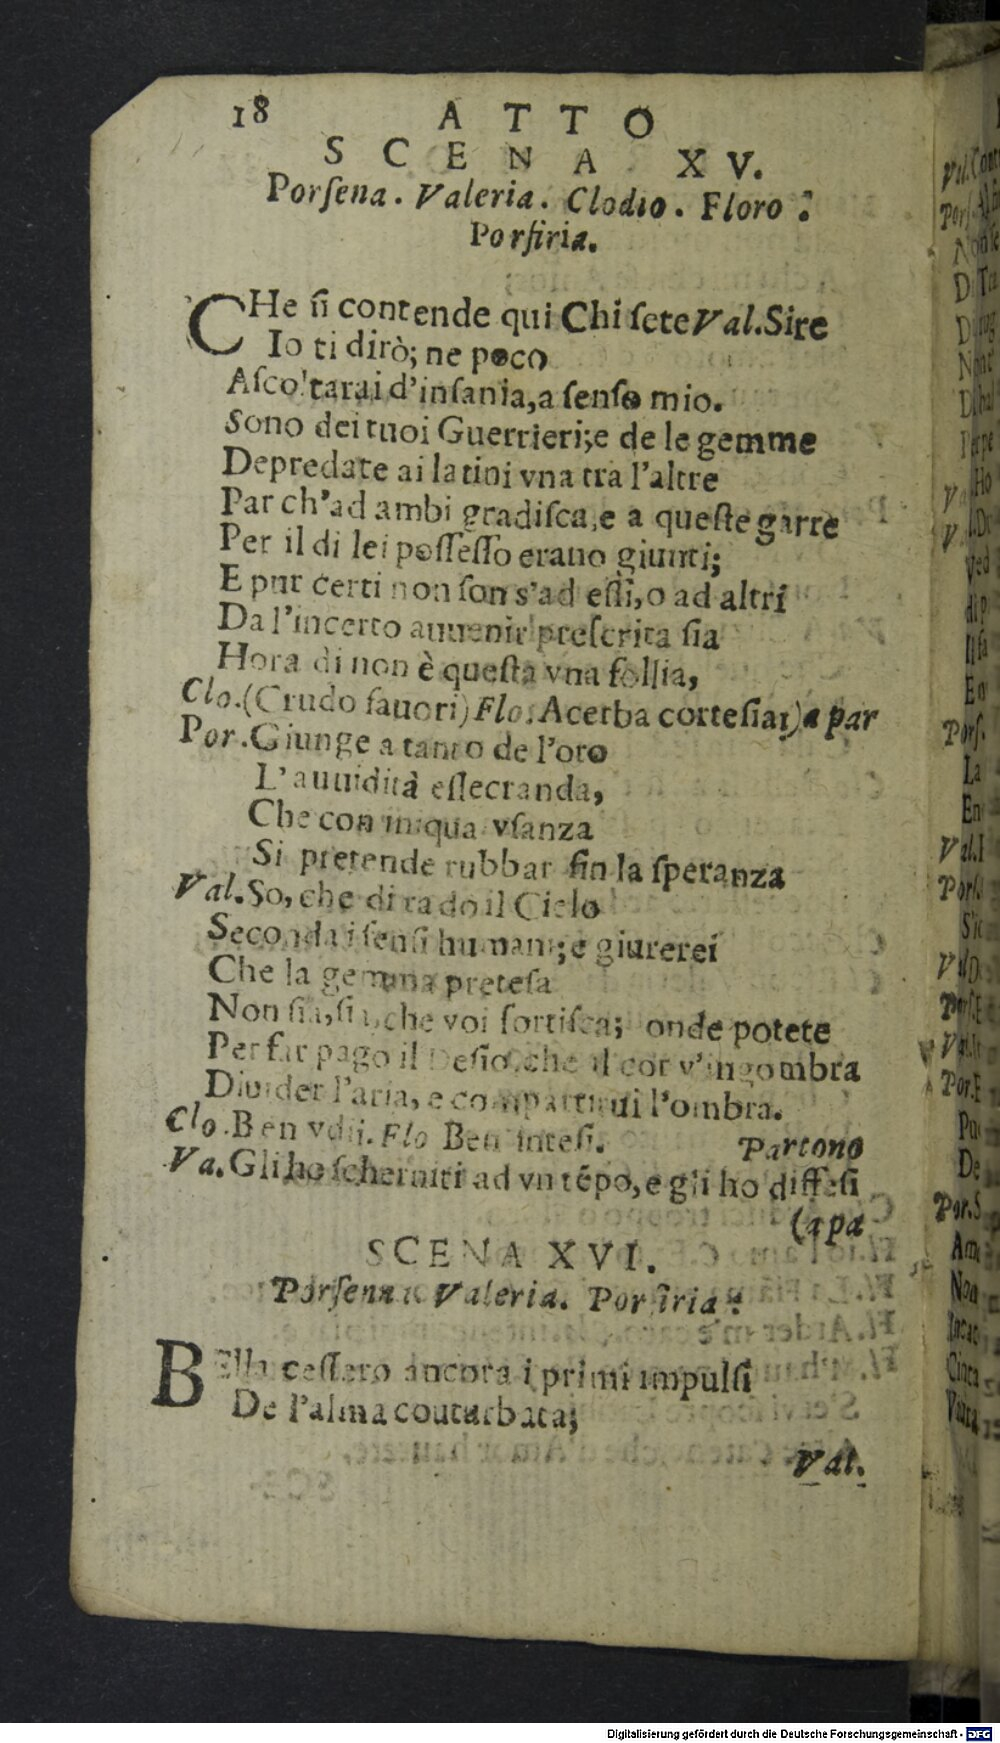 18 ATTO
SCENA XV.
Porſena. Valeria. Clodio. Floro:
Porfiria.
CHe ſi contende qui Chi ſete Val. Sire
Io ti dirò; ne poco
Aſcoltarai d'inſania, a ſenſo mio.
Sono dei tuoi Guerrieri; e de le gemme
Depredate ai latini vna tra l'altre
Par ch'ad ambi gradiſca, e a queſte garre
Per il di lei poſſeſſo erano giunti;
E pur certi non ſon s'ad eſſi, o ad altri
Da l'incerto auuenir preſcrita ſia
Hora di non è queſta vna follia,
Clo. (Crudo fauori) Flo. Acerba corteſia) a par
Por. Giunge a tanto de l'oro
L'auuidità eſſecranda,
Che con iniqua vſanza
Si pretende rubbar fin la ſperanza
Val. So, che di rado il Cielo
Seconda i ſenſi humani; e giurerei
Che la gemma preteſa
Non ſia, ſia, che voi ſortiſca; onde potete
Per far pago il Deſio, che il cor v'ingombra
Diuider l'aria, e compartirui l'ombra.
Clo. Ben vdij. Flo Ben inteſi. Partono
Va. Gli ho ſcherniti ad vn tépo, e gli ho diffeſi
(apa
SCENA XVI.
Porſena. Valeria. Porfiria:
BElla ceſſero ancora i primi impulſi
De l'alma couturbata;
Val.
Val.
Porſ.
Val.
Porſ.
Por.
Digitalisierung gefördert durch die Deutsche Forschungsgemeinschaft - DFG